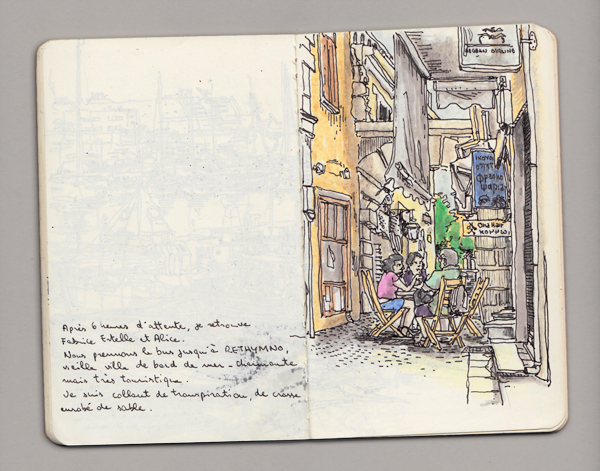 Après 6 heures d'attente, je retrouve
Fabrice Estelle et Alice.
Nous prennons le bus jusqu'à RETHYMNO,
vieille ville de bord de mer - charmante
mais très touristique.
Je suis collant de transpiration, de crasse
enrobé de sable.